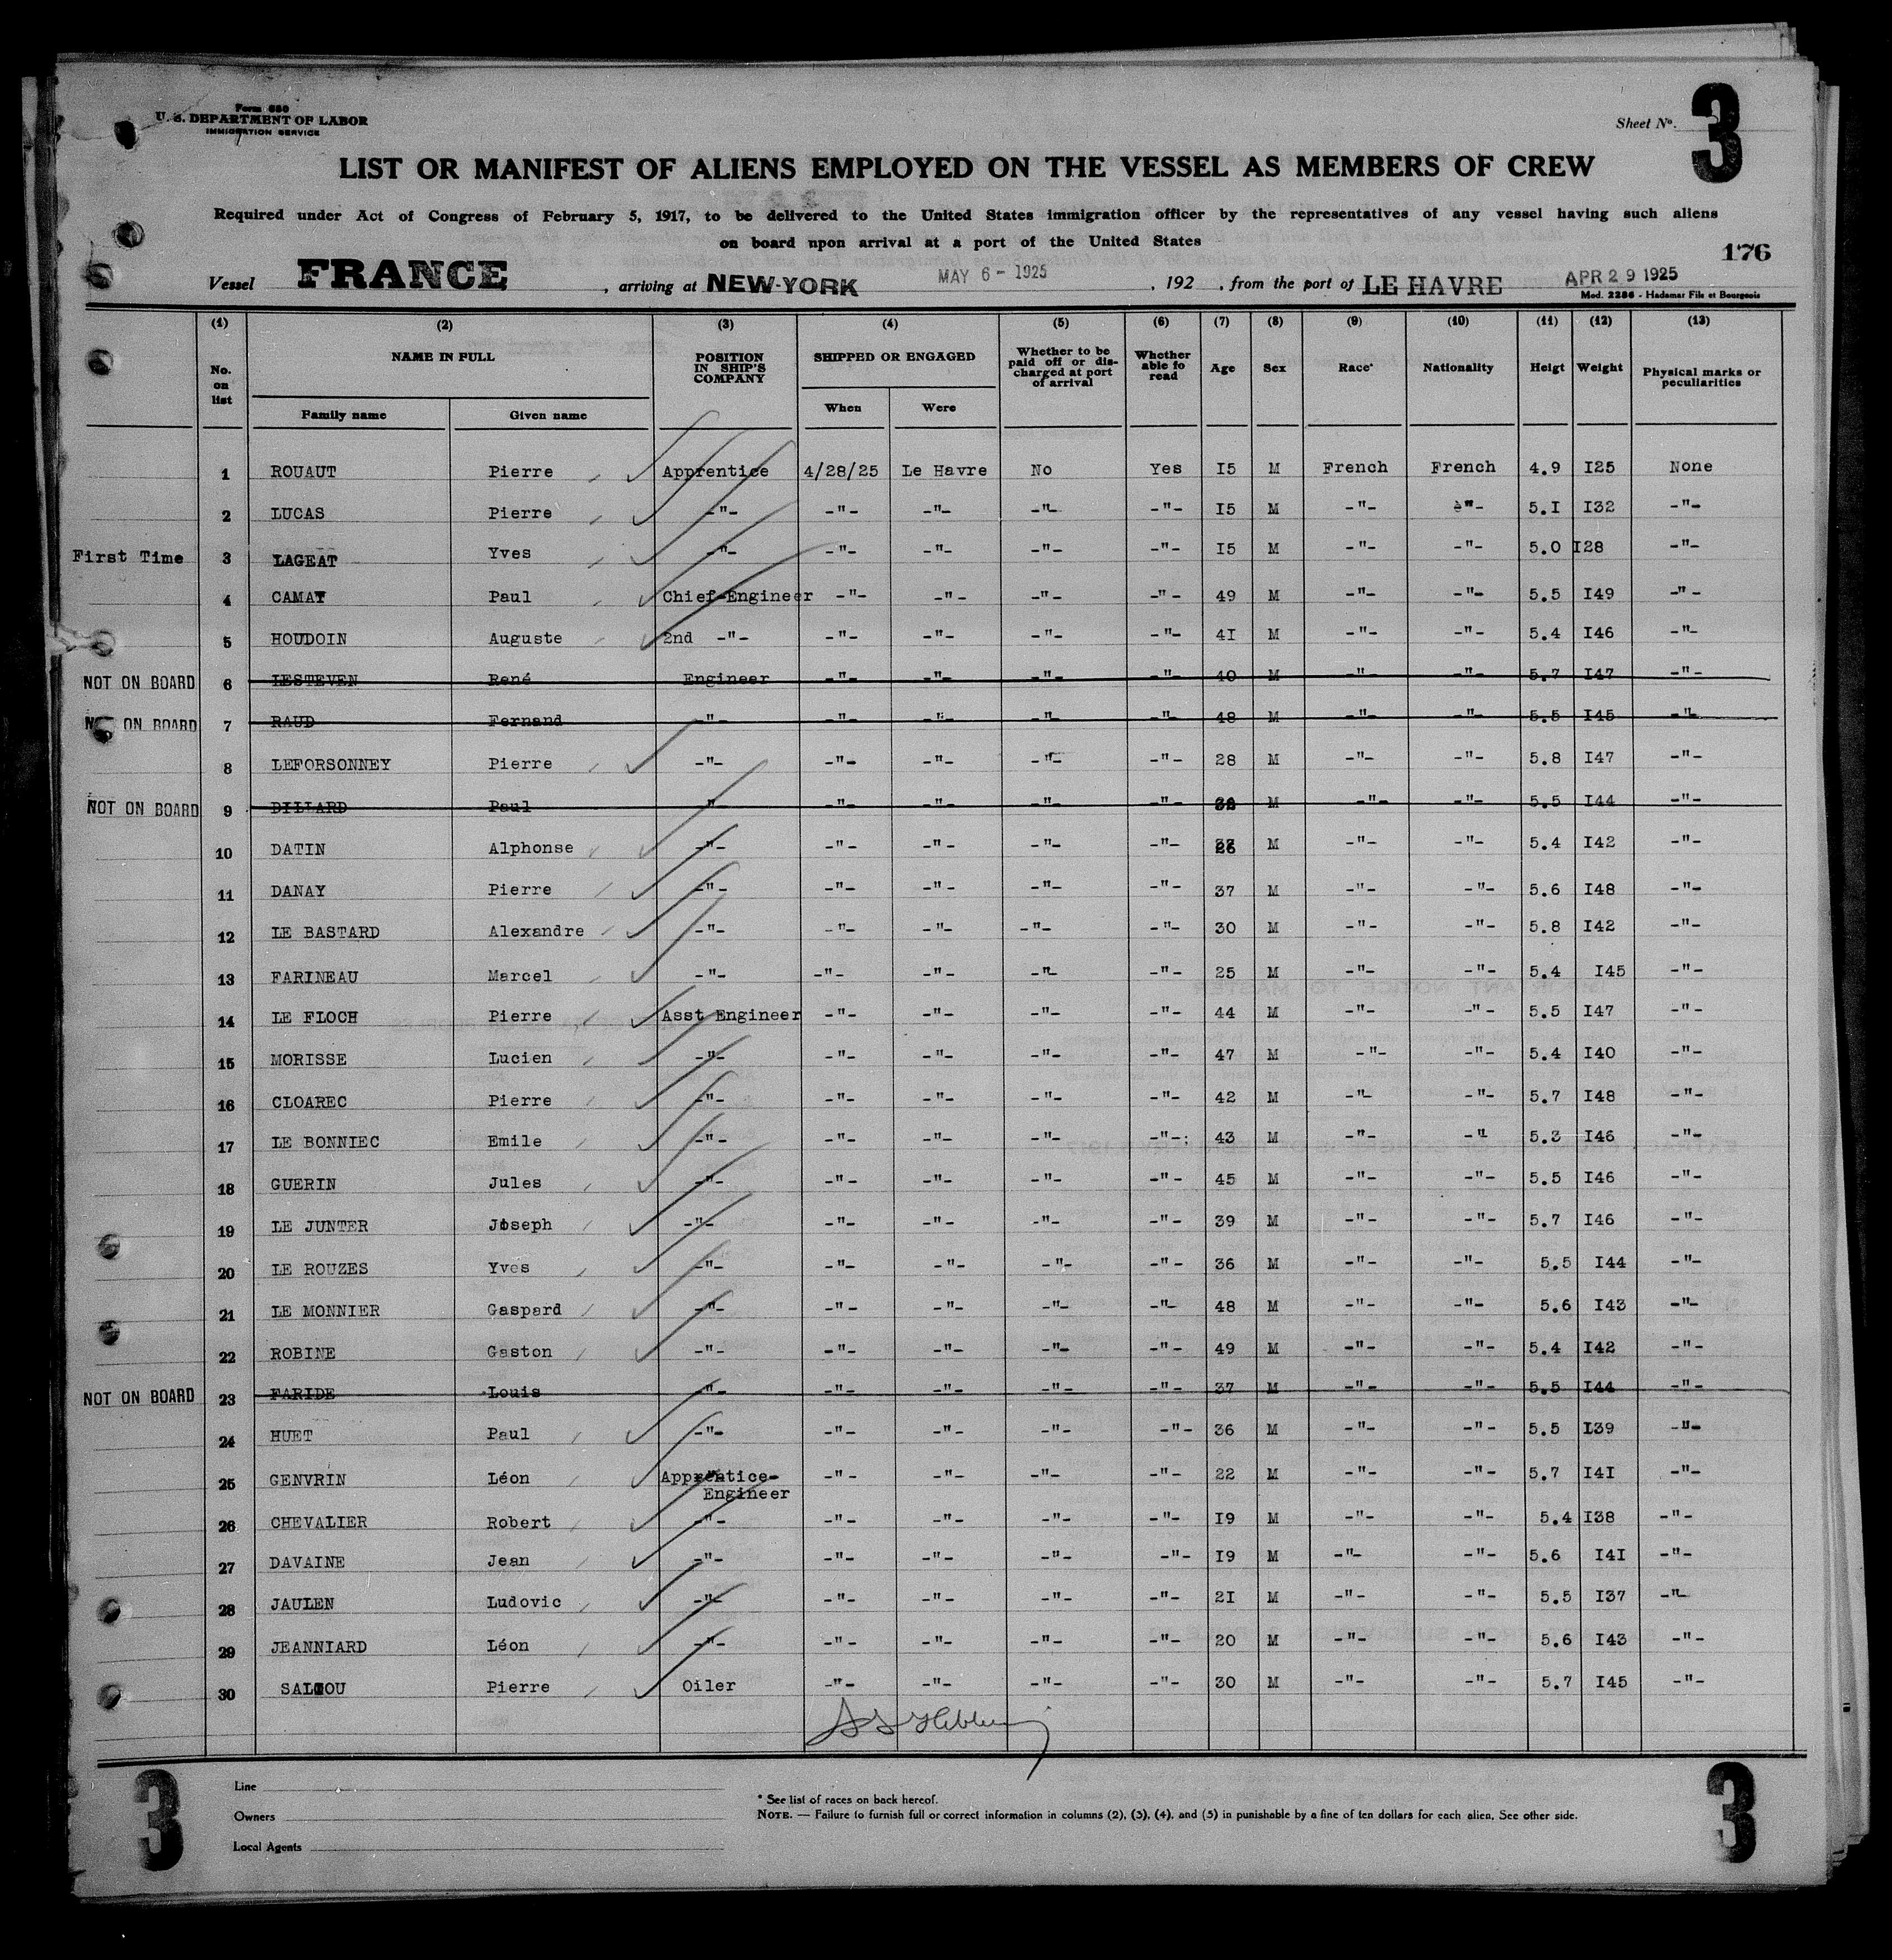 Form 680
U. S. DEPARTMENT OF LABOR
IMMIGRATION SERVICE
Sheet No. 3
LIST OR MANIFEST OF ALIENS EMPLOYED ON THE VESSEL AS MEMBERS OF CREW
Required under Act of Congress of February 5, 1917, to be delivered to the United States immigration officer by the representatives of any vessel having such aliens
on board upon arrival at a port of the United States
176
Vessel FRANCE, arriving at NEW-YORK MAY 6 - 1925, 192 , from the port of LE HAVRE APR 29 1925
Mod. 2286 - Hadamar Fils et Bourgeois
(1) (2) (3) (4) (5) (6) (7) (8) (9) (10) (11) (12) (13)
No. on list NAME IN FULL POSITION IN SHIP'S COMPANY SHIPPED OR ENGAGED Whether to be paid off or discharged at port of arrival Whether able to read Age Sex Race* Nationality Heigt Weight Physical marks or peculiarities
Family name Given name When Were
1 ROUAUT Pierre Apprentice 4/28/25 Le Havre No Yes I5 M French French 4.9 I25 None
2 LUCAS Pierre -"- -"- -"- -"- -"- I5 M -"- -"- 5.I I32 -"-
First Time 3 LAGEAT Yves -"- -"- -"- -"- -"- I5 M -"- -"- 5.0 I28 -"-
4 CAMAY Paul Chief-Engineer -"- -"- -"- -"- 49 M -"- -"- 5.5 I49 -"-
5 HOUDOIN Auguste 2nd -"- -"- -"- -"- -"- 4I M -"- -"- 5.4 I46 -"-
NOT ON BOARD 6 LESTEVEN René Engineer -"- -"- -"- -"- 40 M -"- -"- 5.7 I47 -"-
NOT ON BOARD 7 RAUD Fernand -"- -"- -"- -"- -"- 48 M -"- -"- 5.5 I45 -"-
8 LEFORSONNEY Pierre -"- -"- -"- -"- -"- 28 M -"- -"- 5.8 I47 -"-
NOT ON BOARD 9 DILLARD Paul -"- -"- -"- -"- -"- M -"- -"- 5.5 I44 -"-
10 DATIN Alphonse -"- -"- -"- -"- -"- M -"- -"- 5.4 I42 -"-
11 DANAY Pierre -"- -"- -"- -"- -"- 37 M -"- -"- 5.6 I48 -"-
12 LE BASTARD Alexandre -"- -"- -"- -"- -"- 30 M -"- -"- 5.8 I42 -"-
13 FARINEAU Marcel -"- -"- -"- -"- -"- 25 M -"- -"- 5.4 I45 -"-
14 LE FLOCH Pierre Asst Engineer -"- -"- -"- -"- 44 M -"- -"- 5.5 I47 -"-
15 MORISSE Lucien -"- -"- -"- -"- -"- 47 M -"- -"- 5.4 I40 -"-
16 CLOAREC Pierre -"- -"- -"- -"- -"- 42 M -"- -"- 5.7 I48 -"-
17 LE BONNIEC Emile -"- -"- -"- -"- -"-; 43 M -"- -" 5.3 I46 -"-
18 GUERIN Jules -"- -"- -"- -"- -"- 45 M -"- -"- 5.5 I46 -"-
19 LE JUNTER Joseph -"- -"- -"- -"- -"- 39 M -"- -"- 5.7 I46 -"-
20 LE ROUZES Yves -"- -"- -"- -"- -"- 36 M -"- -"- 5.5 I44 -"-
21 LE MONNIER Gaspard -"- -"- -"- -"- -"- 48 M -"- -"- 5.6 I43 -"-
22 ROBINE Gaston -"- -"- -"- -"- -"- 49 M -"- -"- 5.4 I42 -"-
NOT ON BOARD 23 FARIDE Louis -"- -"- -"- -"- -"- 37 M -"- -"- 5.5 I44 -"-
24 HUET Paul -"- -"- -"- -"- -"- 36 M -"- -"- 5.5 I39 -"-
25 GENVRIN Léon Apprentice-Engineer -"- -"- -"- -"- 22 M -"- -"- 5.7 I4I -"-
26 CHEVALIER Robert -"- -"- -"- -"- -"- I9 M -"- -"- 5.4 I38 -"-
27 DAVAINE Jean -"- -"- -"- -"- -"- I9 M -"- -"- 5.6 I4I -"-
28 JAULEN Ludovic -"- -"- -"- -"- -"- 2I M -"- -"- 5.5 I37 -"-
29 JEANNIARD Léon -"- -"- -"- -"- -"- 20 M -"- -"- 5.6 I43 -"-
30 Pierre Oiler -"- -"- -"- -"- 30 M -"- -"- 5.7 I45 -"-
3 3
Line
Owners
Local Agents
* See list of races on back hereof.
NOTE. — Failure to furnish full or correct information in columns (2), (3), (4), and (5) in punishable by a fine of ten dollars for each alien. See other side.